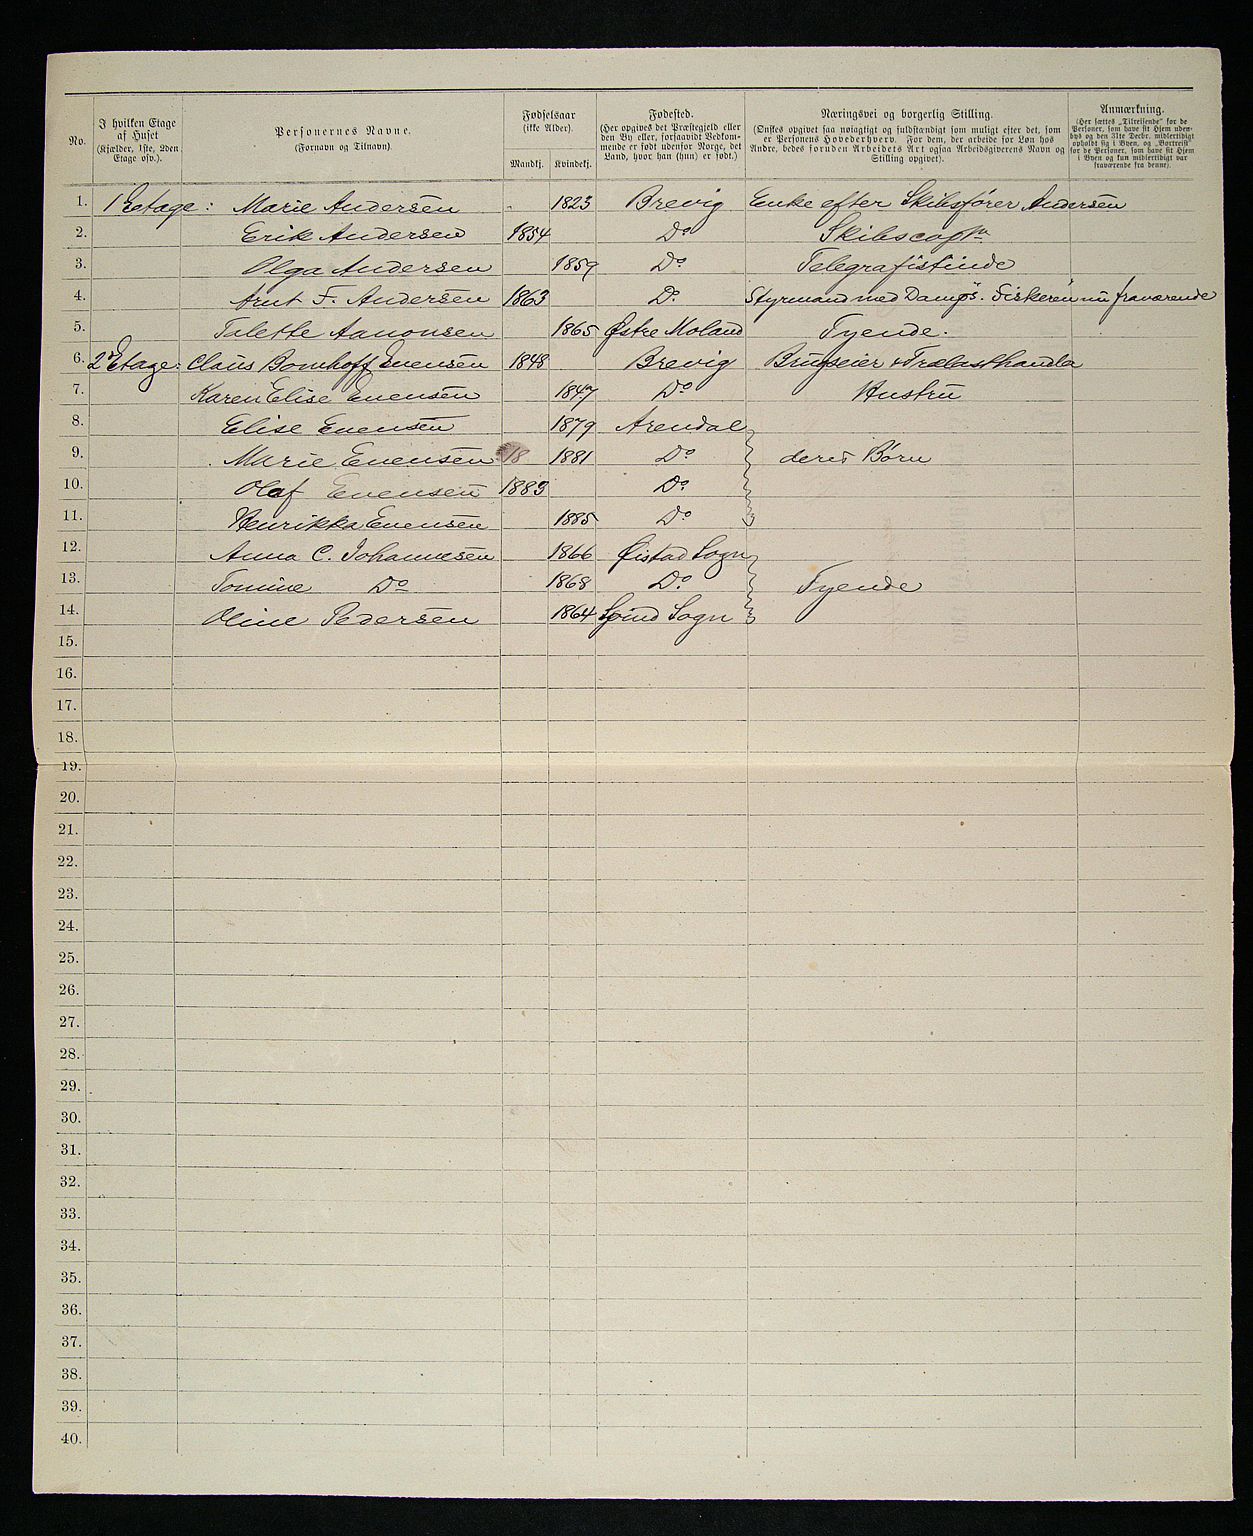 No.
I hvilken Etage
af Huset
(Kjælder, 1ste, 2den
Etage osv.).
Personernes Navne.
(Fornavn og Tilnavn).
Fødselsaar
(ikke Alder).
Mandkj. Kvindekj.
Fødested.
(Her opgives det Præstegjeld eller
den By eller, forsaavidt Vedkom-
mende er født udenfor Norge, det
Land, hvor han (hun) er født.)
Næringsvei og borgerlig Stilling.
(Ønskes opgivet saa nøiagtigt og fuldstændigt som muligt efter det, som
er Personens Hovederhverv. For dem, der arbeide for Løn hos
Andre, bedes foruden Arbeidets Art ogsaa Arbeidsgiverens Navn og
Stilling opgivet).
Anmærkning.
(Her sættes „Tilreisende" for de
Personer, som have sit Hjem uden-
bys og den 31te Decbr. midlertidigt
opholdt sig i Byen, og „Bortreist"
for de Personer, som have sit Hjem
i Byen og kun midlertidigt var
fraværende fra denne).
1. 1 Eetage: Marie Andersen 1823 Brevig Enke efter Skibsfører Andersen
2. Erik Andersen 1854 Do Skibscaptn
3. Olga Andersen 1859 Do Telegrafistinde
4. Arnt F. Andersen 1863 Do Styrmand med Damps. Fiskeren nu fraværende
5. Talette Aanonsen 1865 Østre Moland Tyende.
6. 2 Etage: Claus Bomhoff Evensen 1848 Brevig Brugseier & Trælasthandle
7. Karen Elise Evensen 1847 Do Hustru
8. Elise Evensen 1879 Arendal
9. Marie Evensen 18 1881 Do deres Børn
10. Olaf Evensen 1883 Do
11. Henrikka Evensen 1885 Do
12. Anna C. Johannesen 1866 Øistad Sogn
13. Tomine Do 1868 Do Tyende
14. Oline Pedersen 1864 Spind Sogn
15.
16.
17.
18.
19.
20.
21.
22.
23.
24.
25.
26.
27.
28.
29.
30.
31.
32.
33.
34.
35.
36.
37.
38.
39.
40.